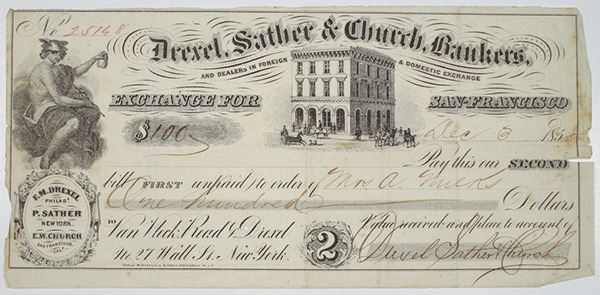 No 25148
Drexel, Sather & Church, Bankers,
AND DEALERS IN FOREIGN & DOMESTIC EXCHANGE
EXCHANGE FOR SAN-FRANCISCO
$100 Dec 3 185
Pay this our SECOND
bill FIRST unpaid) to order of Mrs. A.
One hundred Dollars
F.M. DREXEL
PHILADA
P. SATHER
NEW YORK.
E.W. CHURCH
SAN FRANCISCO,
CAL.
To Van Vleck, Read & Drexel Value received and place to account of
No. 27 Wall St. New York. 2 Drexel Sather & Church